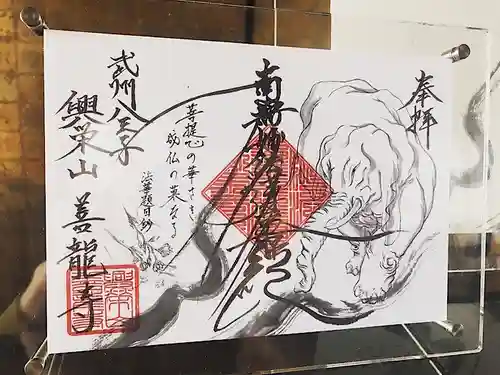 奉拝
南無妙法蓮華経
菩提心の華さき
成仏の菓なる
法華題目鈔
武州八王子
興栄山 善龍寺